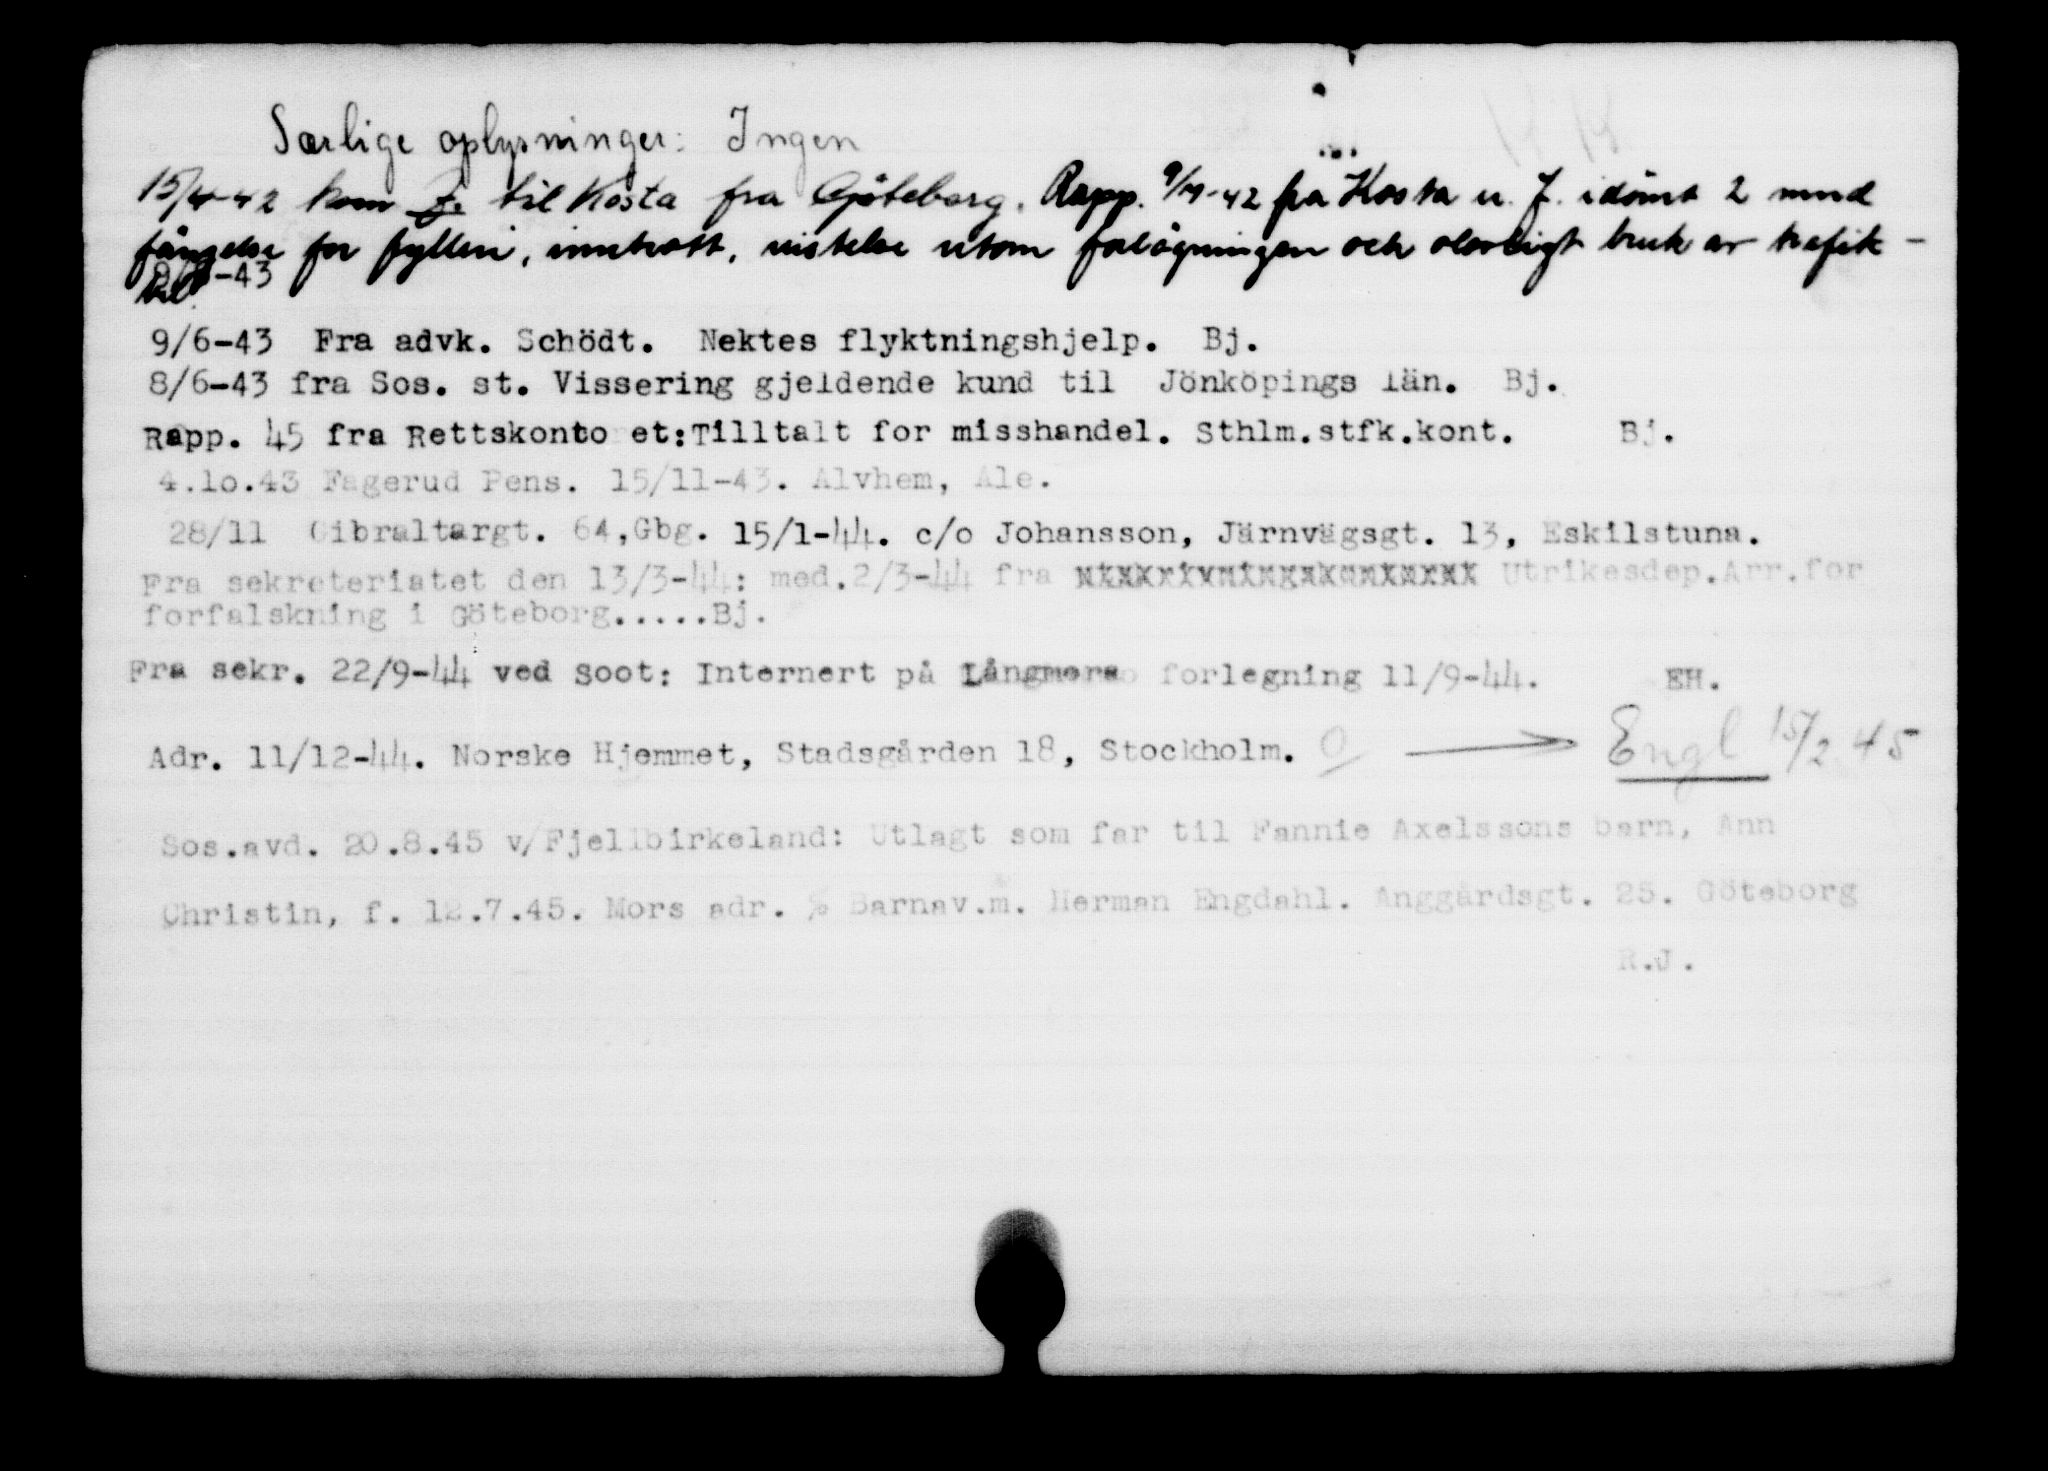 Særlige oplysninger: Ingen
15/4-42 kom J. til Kosta fra Göteborg. Rapp. 9/4-42 fra Kosta u. J. idömt 2 mnd
fängelse for fylleri, inntrott, vistelse utom forlägningen och olovligt bruk av trafik-
bil.
-43
9/6-43 Fra advk. Schödt. Nektes flyktningshjelp. Bj.
8/6-43 fra Sos. st. Vissering gjeldende kund til Jönköpings län. Bj.
Rapp. 45 fra Rettskonto et:Tilltalt for misshandel. Sthlm.stfk.kont. Bj.
4.10.43 Fagerud Pens. 15/11-43. Alvhem, Ale.
28/11 Gibraltargt. 64,Gbg. 15/1-44. c/o Johansson, Järnvägsgt. 13, Eskilstuna.
Fra sekreteriatet den 13/3-44: med.2/3-44 fra Utrikesdep.Arr.for
forfalskning i Göteborg.....Bj.
Fra sekr. 22/9-44 ved Soot: Internert på Långmora forlegning 11/9-44. EH.
Adr. 11/12-44. Norske Hjemmet, Stadsgården 18, Stockholm. → Engl 15/2 45
Sos.avd. 20.8.45 v/Fjellbirkeland: Utlagt som far til Fannie Axelssons barn, Ann
Christin, f. 12.7.45. Mors adr. % Barnav.m. Herman Engdahl. Anggårdsgt. 25. Göteborg
R.J.